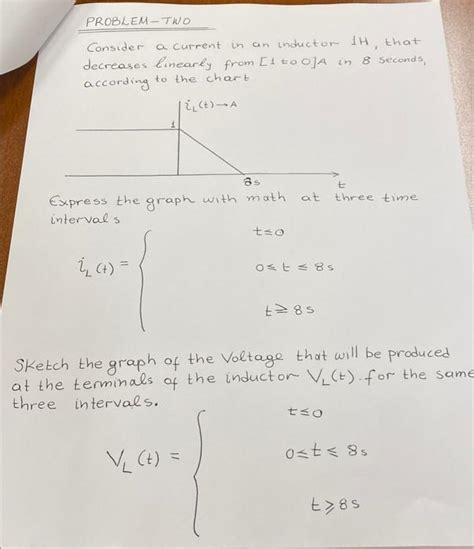 PROBLEM-TWO
Consider a current in an inductor 1H, that
decreases linearly from [1 to 0]A in 8 seconds,
according to the chart
iL(t)→A
1
8s
t
Express the graph with math at three time
intervals
t≤0
iL(t) = {
0≤t≤8s
t≥8s
Sketch the graph of the Voltage that will be produced
at the terminals of the inductor VL(t). for the same
three intervals.
t≤0
VL(t) = {
0≤t≤8s
t≥8s